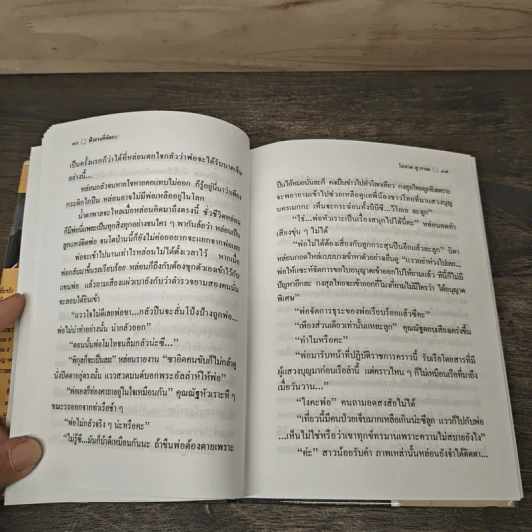 ๓๖ ฟ้าลงที่อัสดร
เป็นครั้งแรกก็ว่าได้ที่หล่อนตกใจกลัวว่าพ่อจะได้รับบาดเจ็บ
อย่างนี้...
หล่อนกลัวจนหายใจหายคอแทบไม่ออก ก็รู้อยู่นี่นาว่าเพียง
กะระตึกใดปืน หล่อนอาจไม่มีพ่อเหลืออยู่ในโลก
น้ำตาพาลจะไหลเมื่อหล่อนคิดมาถึงตรงนี้ ชั่วชีวิตหล่อน
ก็มีพ่อนี่แหละเป็นทุกสิ่งทุกอย่างจนใคร ๆ พากันล้อว่า หล่อนเป็น
ลูกแหง่ติดพ่อ จนโตป่านนี้ก็ยังไม่ค่อยอยากจะแยกจากพ่อเลย
พ่อจะเข้าไปในงานทำไรหล่อนไม่ได้ตั้งเวลาไว้ หากเมื่อ
พ่อกลับมาขึ้นรถเรียบร้อย หล่อนก็ถึงกับต้องซุกตัวเองเข้าไว้กับ
แขนพ่อ แล้วถามเสียงแผ่วเบาราวกับว่าตำรวจยามสองคนนั่น
จะลอบได้ยินเข้า
“แววใจไม่ดีเลยพ่อขา...กลัวเป็นจะลั่นโป้งป้างถูกพ่อ...
พ่อไม่น่าทำอย่างนั้น น่ากลัวออก”
“ตอนนั้นพ่อโมโหจนลืมกลัวน่ะซี...”
“พิกุลก็จะเป็นลม” หล่อนรายงาน “ขาอิดคนขับก็ไม่กล้าดู
นั่งปิดตาอยู่ตรงนั้น แววสวดมนต์บอกพระอัลล่าห์ให้พ่อ”
“พ่อเองก็ท่องคาถาอยู่ในใจเหมือนกัน” คุณณัฐหัวเราะหึ ๆ
ขณะรถออกจากท่าเรือช้า ๆ
“พ่อไม่กลัวจริง ๆ น่ะหรือคะ”
“ไม่รู้ซี...มันก็บ้าดีเหมือนกันนะ ถ้าขืนพ่อต้องตายเพราะ
โสภาค สุวรรณ ๓๗
ปืนไอ้หมอนั่นละก็ คงเป็นข่าวไปทั่วโลกเทียว กงสุลไทยถูกยิงเพราะ
จะพยายามเข้าไปช่วยเหลือดูแลพี่น้องชาวไทยที่มาแสวงบุญ
นครเมกกะ เห็นจะกระฉ่อนทั้งบีบีซี...วีโอเอ ละลูก”
“โธ่...พ่อทำเราะเป็นเรื่องสนุกไปได้นี่คะ” หล่อนทอด
เสียงขุ่น ๆ ไม่ได้
“พ่อไม่ได้ต้องเสี่ยงกับถูกกระสุนปืนอีกแล้วละลูก” บิดา
หล่อนกอดไหล่แบบบางเข้าหาตัวอย่างเอ็นดู “แววอย่าห่วงไปเลย...
พ่อให้แขะทำจัดการขอใบอนุญาตเข้าออกไปให้ยามแล้ว ทีนี้ก็ไม่มี
ปัญหาอีกละ กงสุลไทยจะเข้าออกก็ไม่ต้องเกี่ยงไม่มีใครว่า ได้อนุญาต
พิเศษ”
“พ่อจัดการธุระของพ่อเรียบร้อยแล้วซีคะ”
“เพียงส่วนเดียวเท่านั้นแหละลูก” คุณณัฐตอบเสียงเคร่งขึ้น
“ทำไมหรือคะ”
“พ่อมารับหน้าที่ปฏิบัติราชการคราวนี้ รับเรือโดยสารที่มี
ผู้แสวงบุญมาก่อนเรือลำนี้ แต่คราวไหน ๆ ก็ไม่เหมือนเรือที่มาถึง
เมื่อวันวาน...”
“ไงคะพ่อ” คนถามอดสงสัยไม่ได้
“เที่ยวนี้มีคนป่วยเจ็บมากเหลือเกินน่ะซีลูก แววก็ไปกับพ่อ
...เห็นไม่ใช่หรือว่าเขาทุกข์ทรมานเพราะความไม่สบายยังไง”
“ค่ะ” สาวน้อยรับคำ ภาพเหล่านั้นหล่อนยังจำได้ติดตา...